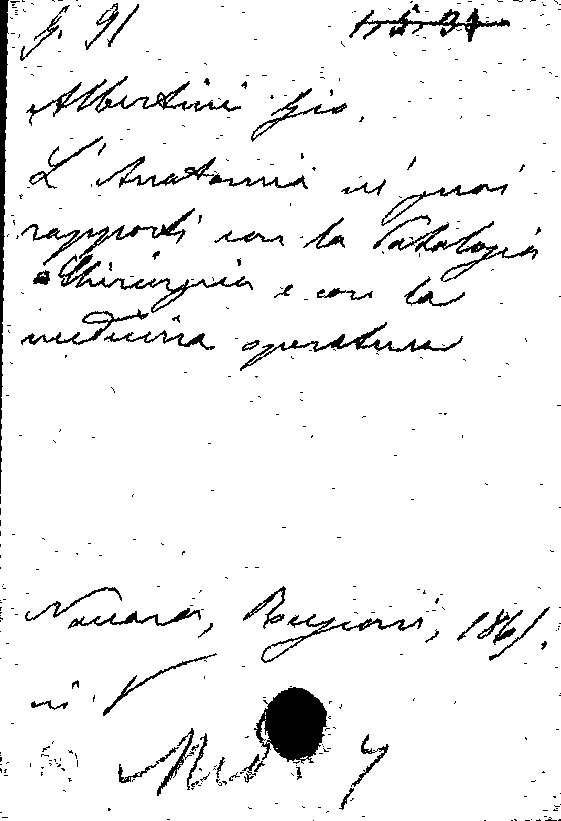 G. 91
Albertini Gio.
L'Anatomia ne' suoi
rapporti con la Patologia
Chirurgia e con la
medicina operatura
Novara, 1861.
in
Med. 7